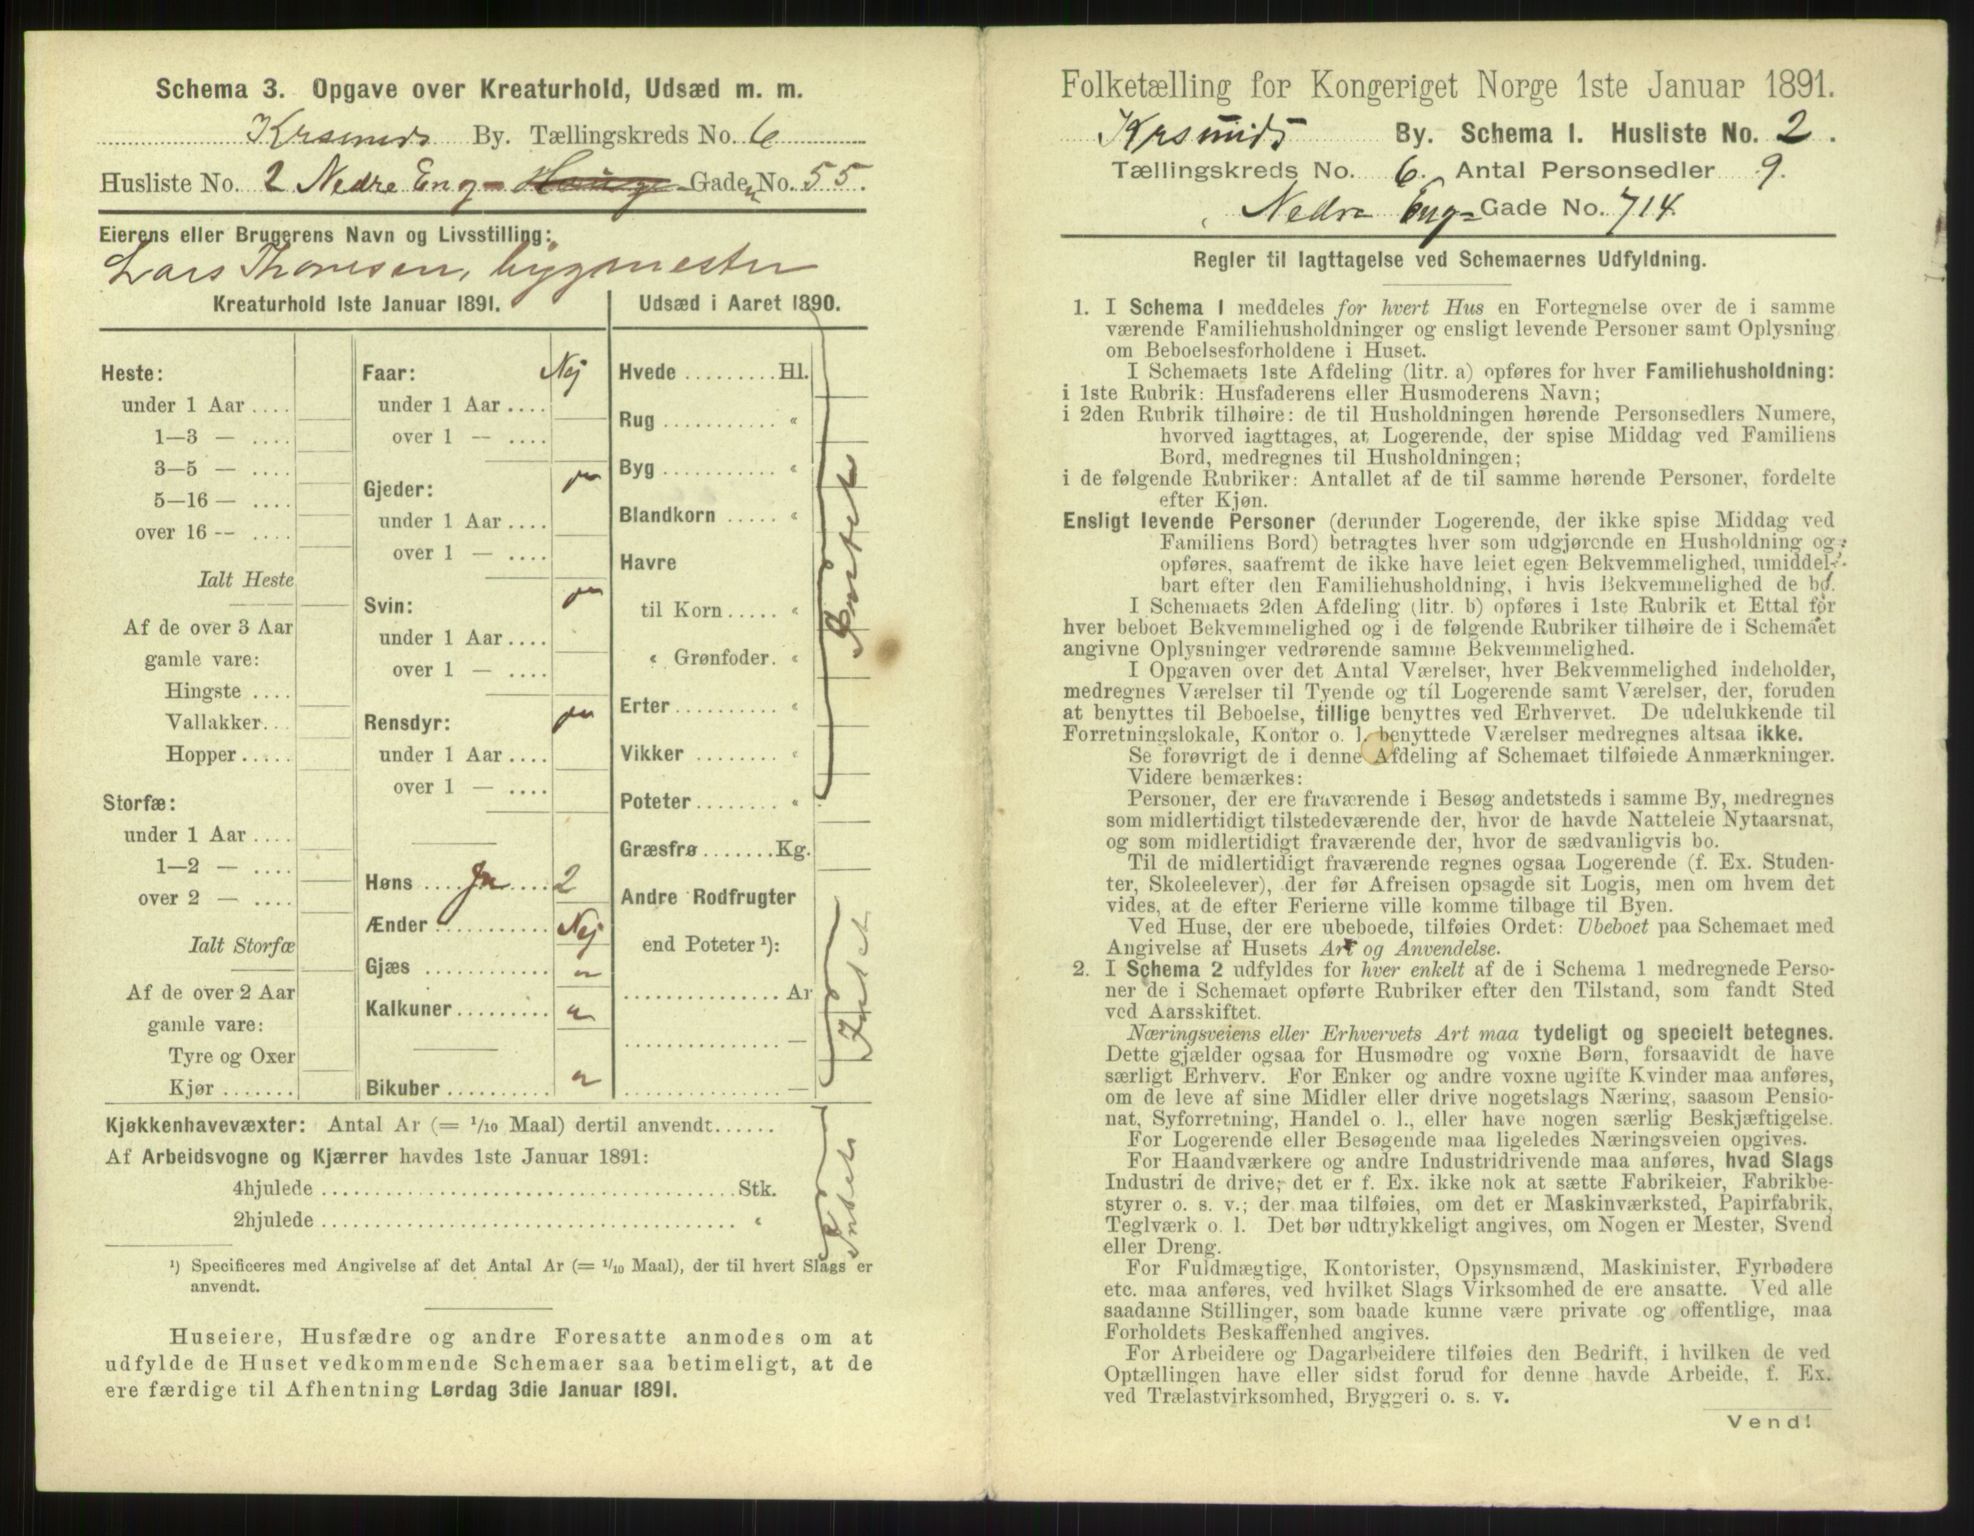 Schema 3. Opgave over Kreaturhold, Udsæd m. m.
Krsunds By. Tællingskreds No. 6
Husliste No. 2 Nedre Eng- Gaden No. 55.
Eierens eller Brugerens Navn og Livsstilling:
Lars Thomesen, bygmester
Kreaturhold 1ste Januar 1891.
Heste:
under 1 Aar ....
1—3 — ....
3—5 — ....
5—16 — ....
over 16 -- ....
Ialt Heste
Af de over 3 Aar
gamle vare:
Hingste ....
Vallakker...
Hopper .....
Storfæ:
under 1 Aar ....
1—2 — ....
over 2 — ....
Ialt Storfæ
Af de over 2 Aar
gamle vare:
Tyre og Oxer
Kjør .......
Faar: Nej
under 1 Aar ....
over 1 — ....
Gjeder:
under 1 Aar ....
over 1 — ....
Svin:
under 1 Aar ....
over 1 — ....
Rensdyr:
under 1 Aar ....
over 1 — ....
Høns .... Ja .... 2
Ænder ........... Nej
Gjæs ............ "
Kalkuner ......... "
Bikuber .......... "
Udsæd i Aaret 1890.
Hvede ......... Hl.
Rug ........... «
Byg ........... «
Blandkorn ..... «
Havre
til Korn ..... «
« Grønfoder. «
Erter .......... «
Vikker ......... «
Poteter ........ «
Græsfrø ....... Kg.
Andre Rodfrugter
end Poteter ¹):
............... Ar
............... —
............... —
Intet
Intet
Kjøkkenhavevæxter: Antal Ar (= 1/10 Maal) dertil anvendt......
Af Arbeidsvogne og Kjærrer havdes 1ste Januar 1891:
4hjulede ........................................ Stk.
2hjulede ........................................ «
Intet
¹) Specificeres med Angivelse af det Antal Ar (= 1/10 Maal), der til hvert Slags er
anvendt.
Huseiere, Husfædre og andre Foresatte anmodes om at
udfylde de Huset vedkommende Schemaer saa betimeligt, at de
ere færdige til Afhentning Lørdag 3die Januar 1891.
Folketælling for Kongeriget Norge 1ste Januar 1891.
Krsunds By. Schema 1. Husliste No. 2.
Tællingskreds No. 6. Antal Personsedler 9.
Nedre Eng- Gade No. 714
Regler til Iagttagelse ved Schemaernes Udfyldning.
1. I Schema 1 meddeles for hvert Hus en Fortegnelse over de i samme
værende Familiehusholdninger og ensligt levende Personer samt Oplysning
om Beboelsesforholdene i Huset.
I Schemaets 1ste Afdeling (litr. a) opføres for hver Familiehusholdning:
i 1ste Rubrik: Husfaderens eller Husmoderens Navn;
i 2den Rubrik tilhøire: de til Husholdningen hørende Personsedlers Numere,
hvorved iagttages, at Logerende, der spise Middag ved Familiens
Bord, medregnes til Husholdningen;
i de følgende Rubriker: Antallet af de til samme hørende Personer, fordelte
efter Kjøn.
Ensligt levende Personer (derunder Logerende, der ikke spise Middag ved
Familiens Bord) betragtes hver som udgjørende en Husholdning og
opføres, saafremt de ikke have leiet egen Bekvemmelighed, umiddel-
bart efter den Familiehusholdning, i hvis Bekvemmelighed de bo.
I Schemaets 2den Afdeling (litr. b) opføres i 1ste Rubrik et Ettal for
hver beboet Bekvemmelighed og i de følgende Rubriker tilhøire de i Schemaet
angivne Oplysninger vedrørende samme Bekvemmelighed.
I Opgaven over det Antal Værelser, hver Bekvemmelighed indeholder,
medregnes Værelser til Tyende og til Logerende samt Værelser, der, foruden
at benyttes til Beboelse, tillige benyttes ved Erhvervet. De udelukkende til
Forretningslokale, Kontor o. l. benyttede Værelser medregnes altsaa ikke.
Se forøvrigt de i denne Afdeling af Schemaet tilføiede Anmærkninger.
Videre bemærkes:
Personer, der ere fraværende i Besøg andetsteds i samme By, medregnes
som midlertidigt tilstedeværende der, hvor de havde Natteleie Nytaarsnat,
og som midlertidigt fraværende der, hvor de sædvanligvis bo.
Til de midlertidigt fraværende regnes ogsaa Logerende (f. Ex. Studen-
ter, Skoleelever), der før Afreisen opsagde sit Logis, men om hvem det
vides, at de efter Ferierne ville komme tilbage til Byen.
Ved Huse, der ere ubeboede, tilføies Ordet: Ubeboet paa Schemaet med
Angivelse af Husets Art og Anvendelse.
2. I Schema 2 udfyldes for hver enkelt af de i Schema 1 medregnede Perso-
ner de i Schemaet opførte Rubriker efter den Tilstand, som fandt Sted
ved Aarsskiftet.
Næringsveiens eller Erhvervets Art maa tydeligt og specielt betegnes.
Dette gjælder ogsaa for Husmødre og voxne Børn, forsaavidt de have
særligt Erhverv. For Enker og andre voxne ugifte Kvinder maa anføres,
om de leve af sine Midler eller drive nogetslags Næring, saasom Pensio-
nat, Syforretning, Handel o. l., eller have nogen særlig Beskjæftigelse.
For Logerende eller Besøgende maa ligeledes Næringsveien opgives.
For Haandværkere og andre Industridrivende maa anføres, hvad Slags
Industri de drive; det er f. Ex. ikke nok at sætte Fabrikeier, Fabrikbe-
styrer o. s. v.; der maa tilføies, om det er Maskinværksted, Papirfabrik,
Teglværk o. l. Det bør udtrykkeligt angives, om Nogen er Mester, Svend
eller Dreng.
For Fuldmægtige, Kontorister, Opsynsmænd, Maskinister, Fyrbødere
etc. maa anføres, ved hvilket Slags Virksomhed de ere ansatte. Ved alle
saadanne Stillinger, som baade kunne være private og offentlige, maa
Forholdets Beskaffenhed angives.
For Arbeidere og Dagarbeidere tilføies den Bedrift, i hvilken de ved
Optællingen have eller sidst forud for denne havde Arbeide, f. Ex.
ved Trælastvirksomhed, Bryggeri o. s. v.
Vend!